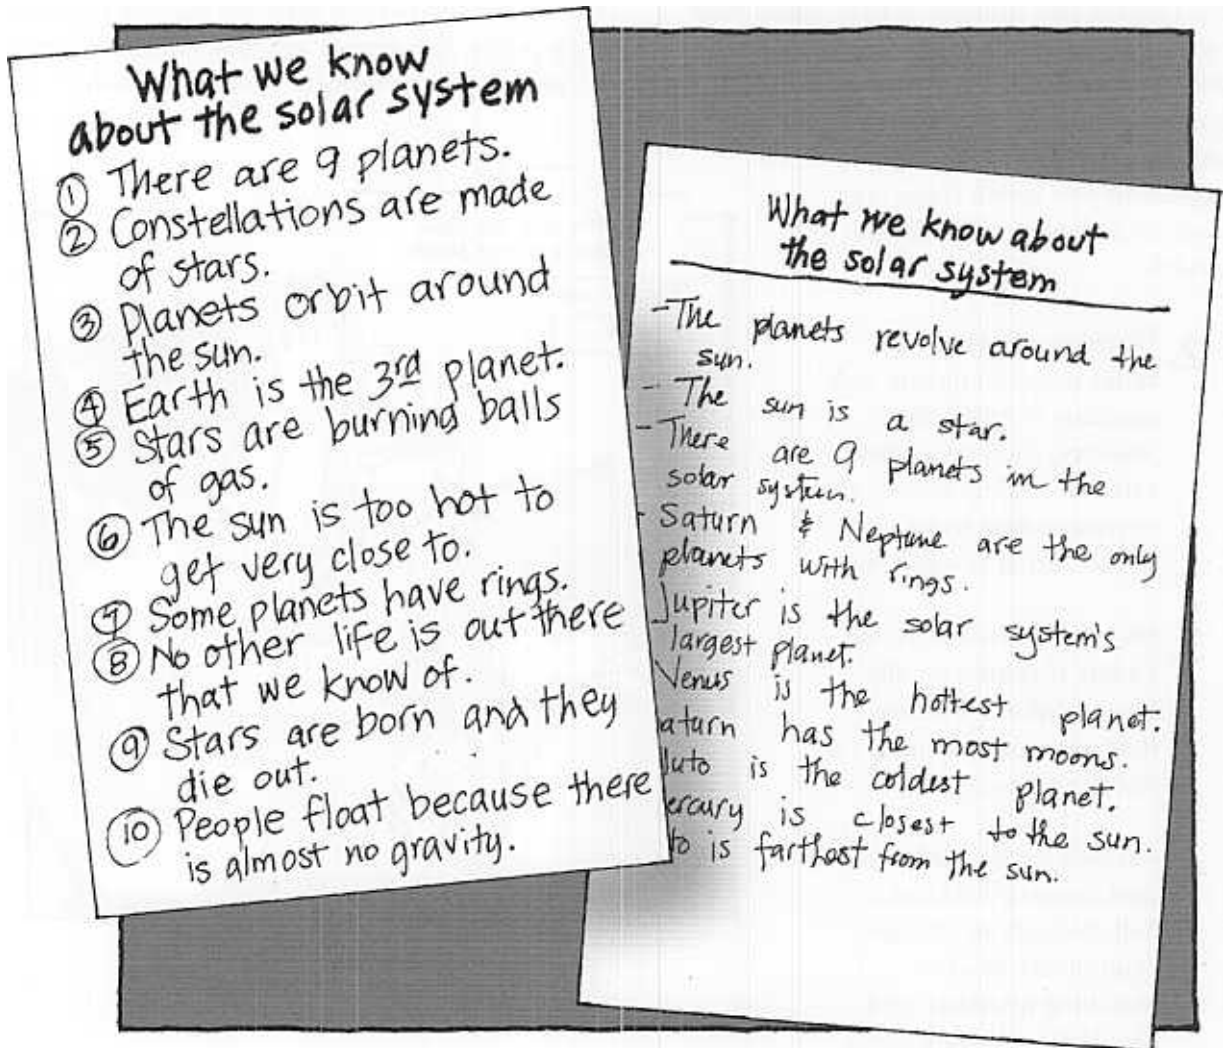 What we know
about the solar system
① There are 9 planets.
② Constellations are made
of stars.
③ Planets orbit around
the sun.
④ Earth is the 3rd planet.
⑤ Stars are burning balls
of gas.
⑥ The sun is too hot to
get very close to.
⑦ Some planets have rings.
⑧ No other life is out there
that we know of.
⑨ Stars are born and they
die out.
⑩ People float because there
is almost no gravity.
What we know about
the solar system
- The planets revolve around the
sun.
- The sun is a star.
- There are 9 planets in the
solar system.
- Saturn & Neptune are the only
planets with rings.
Jupiter is the solar system's
largest planet.
Venus is the hottest planet.
aturn has the most moons.
luto is the coldest planet.
ercury is closest to the sun.
to is farthest from the sun.